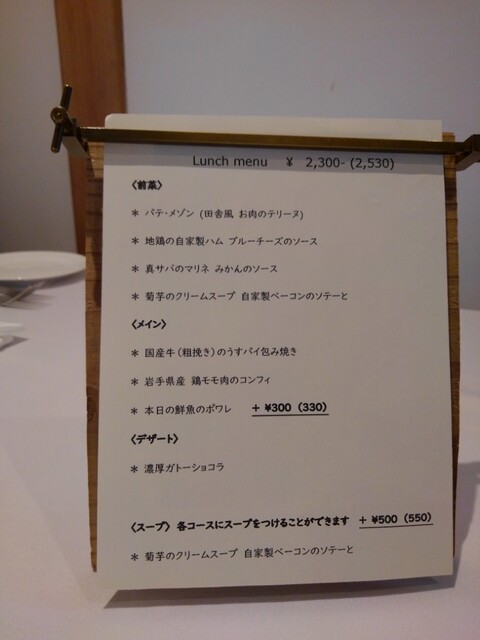 Lunch menu ¥ 2,300- (2,530)
〈前菜〉
＊ パテ・メゾン (田舎風 お肉のテリーヌ)
＊ 地鶏の自家製ハム ブルーチーズのソース
＊ 真サバのマリネ みかんのソース
＊ 菊芋のクリームスープ 自家製ベーコンのソテーと
〈メイン〉
＊ 国産牛（粗挽き）のうすパイ包み焼き
＊ 岩手県産 鶏モモ肉のコンフィ
＊ 本日の鮮魚のポワレ ＋ ¥300（330）
〈デザート〉
＊ 濃厚ガトーショコラ
〈スープ〉 各コースにスープをつけることができます ＋ ¥500（550）
＊ 菊芋のクリームスープ 自家製ベーコンのソテーと